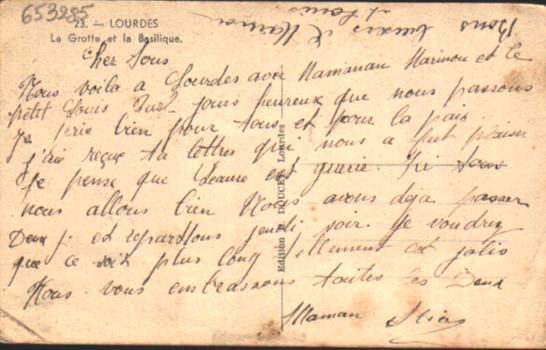 653285
23. — LOURDES
La Grotte et la Basilique.
Bons
et Louis
Cher Sous
Nous voila a Lourdes avec Mamanan Marinou et le
petit Louis Quel jours heureux que nous passons
Je prie bien pour tous et pour la paix
j'aie reçue ta lettres qui nous a fait plaisir
Je pense que est guerie
nous allons bien Nous avons deja passer
Deux j. et repartons jeudi soir Je voudrez
que ce soit plus long tellement est jolis
Nous vous embrassons toutes les Deux
Maman
Edition DOUCET Lourdes